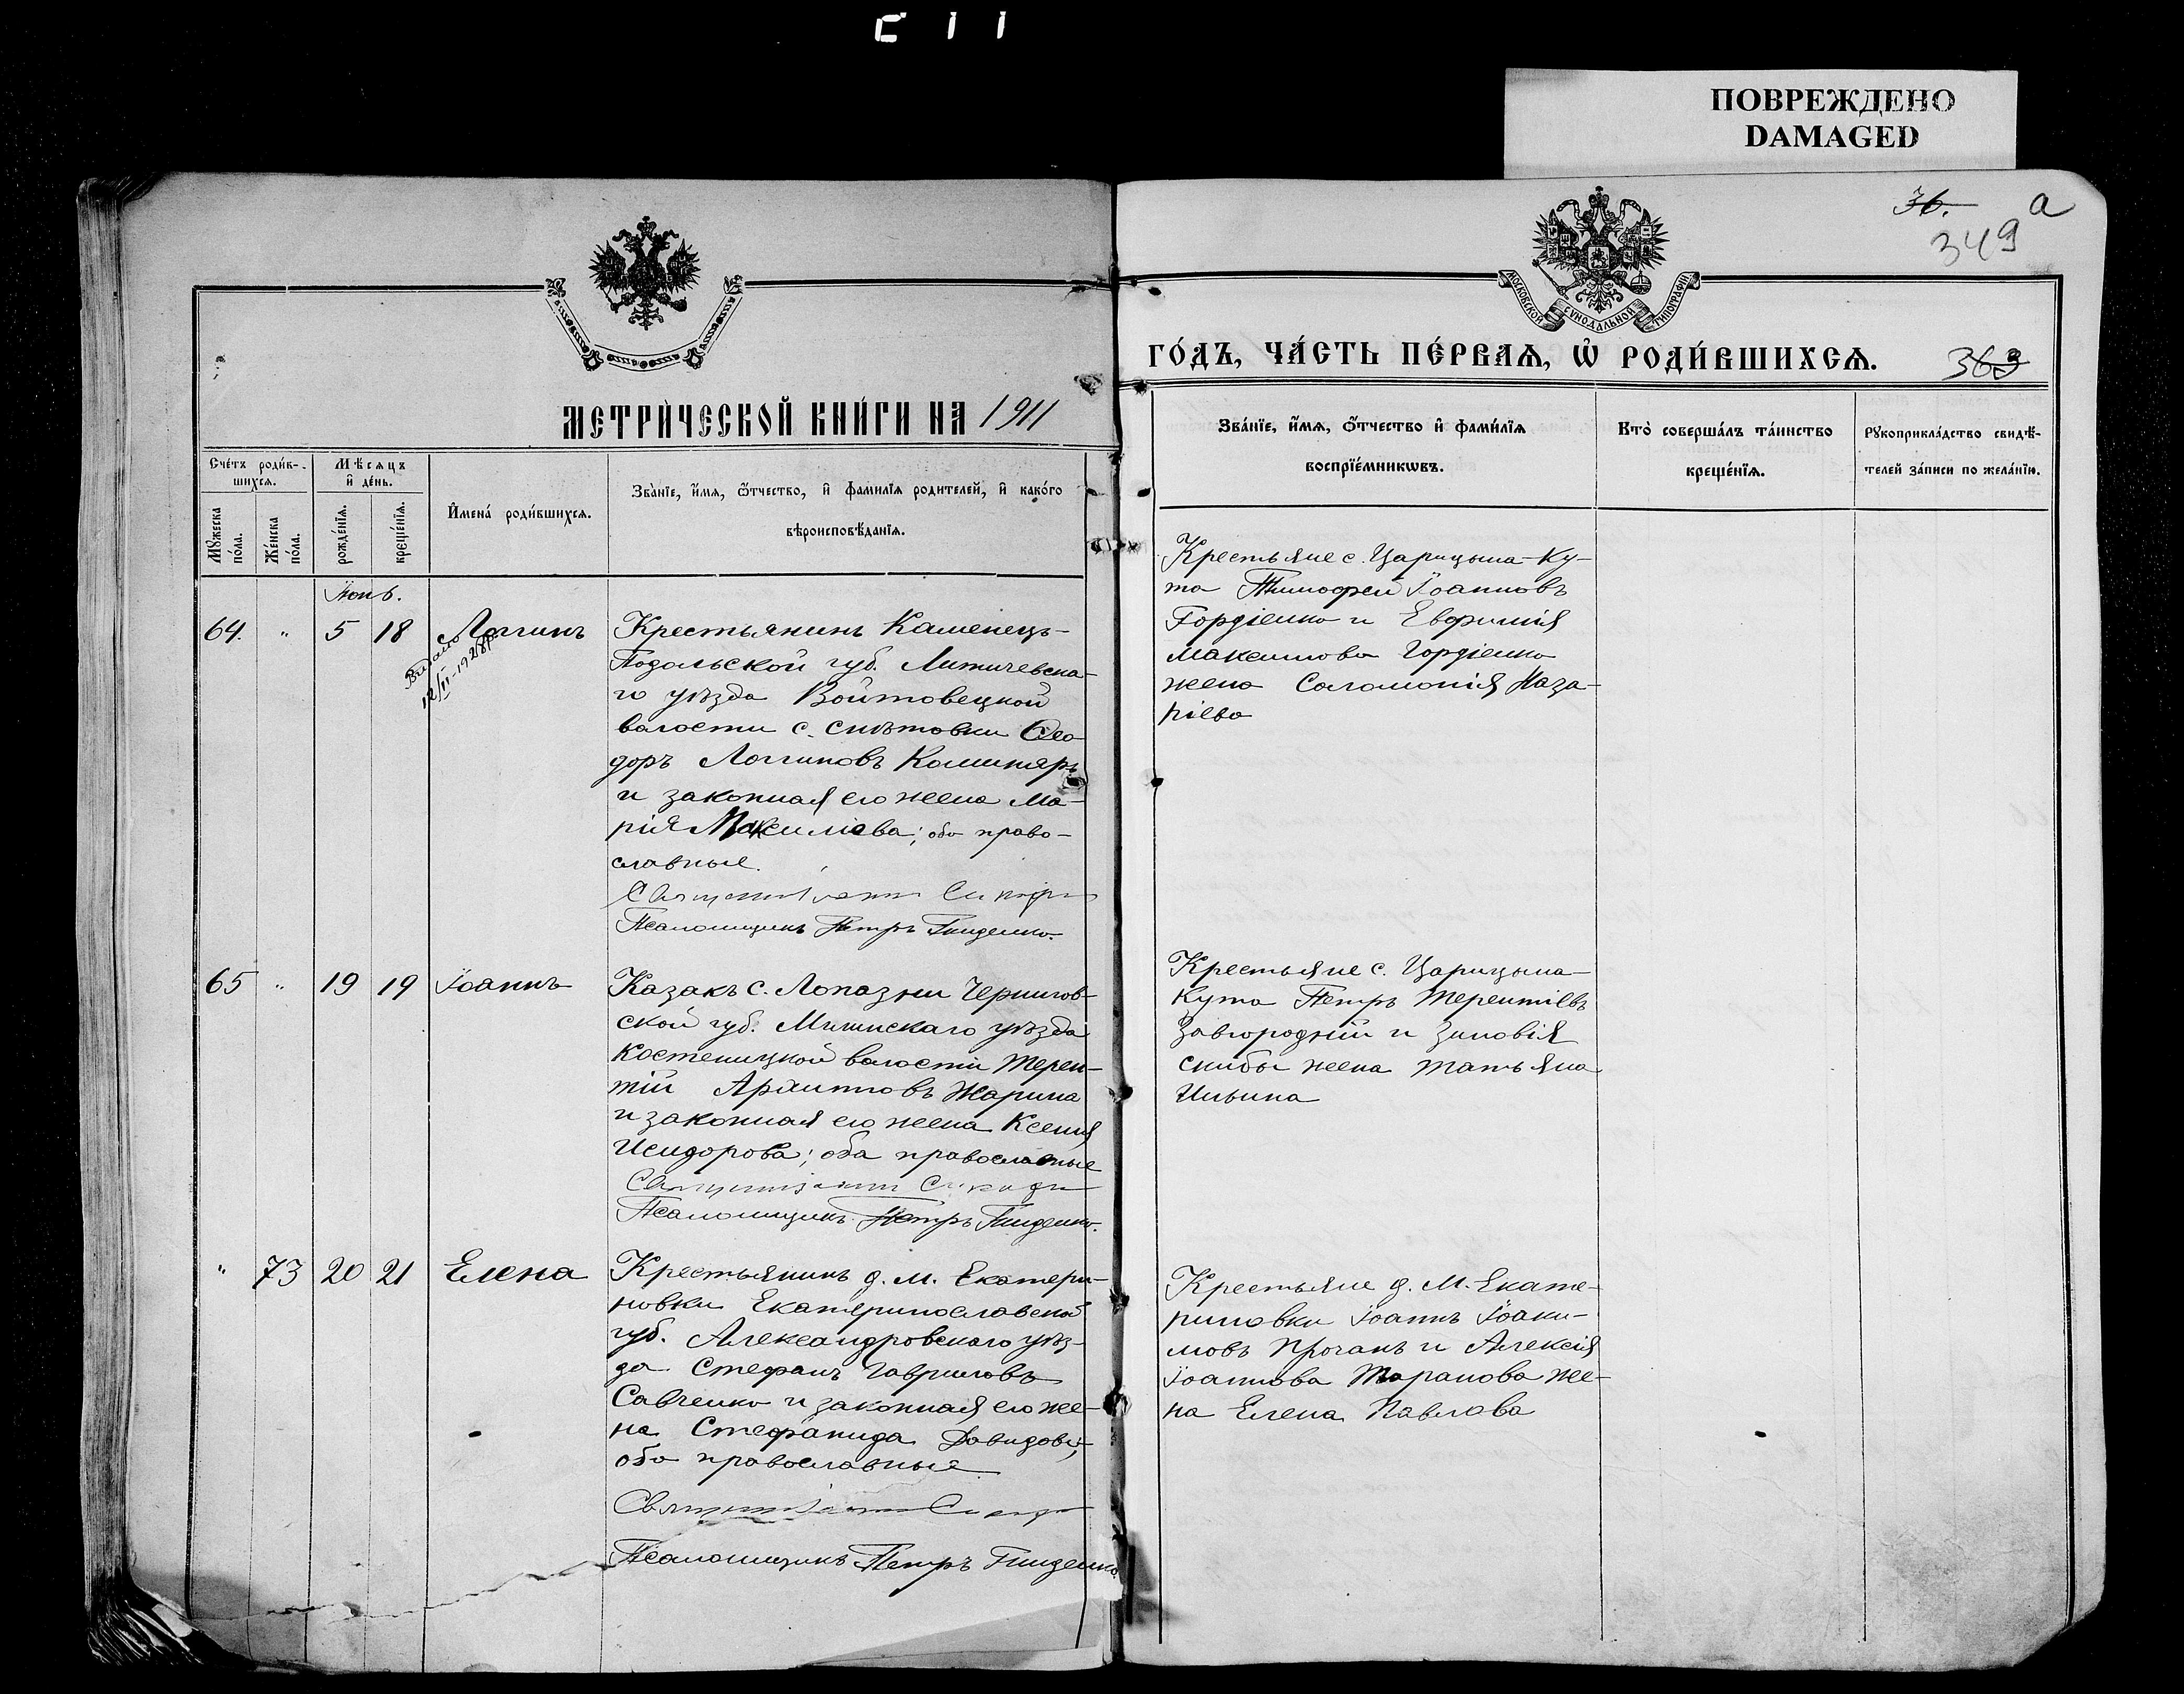 ПОВРЕЖДЕНО
DAMAGED
36. а
349
МОСКОВСКОЙ СѴНОДАЛЬНОЙ ТИПОГРАФІИ
МЕТРИ́ЧЕСКОЙ КНИ́ГИ НА 1911
ГО́ДЪ, ЧА́СТЬ ПЕ́РВАѦ, Ѡ҆ РОДИ́ВШИХСѦ. 363
Сче́тъ роди́в-
шихсѧ.
Мꙋ́жеска
по́ла.
Же́нска
по́ла.
Мѣ́сѧцъ
и҆ де́нь.
рожде́нїѧ.
креще́нїѧ.
И҆мена́ роди́вшихсѧ.
Зва́нїе, и҆́мѧ, ѻ҆́тчество, и҆ фами́лїѧ родителей, и҆ како́го
вѣроисповѣ́данїѧ.
Зва́нїе, и҆́мѧ, ѻ҆́тчество и҆ фами́лїѧ
воспрїе́мникѡвъ.
Кто̀ соверша́лъ та́инство
креще́нїѧ.
Рꙋкоприкла́дство свидѣ́-
телей за́писи по жела́нїю.
Іюнь.
64. " 5 18 Логгинъ
Выдано
12/II-1928
Крестьянинъ Каменецъ-
Подольской губ. Литичевска-
го уѣзда Войтовецкой
волости с. Снѣтовки Ѳео
доръ Логгиновъ Коминяръ
и законная его жена Ма-
рія обо право-
славные.
Псаломщикъ Петръ Гниденко.
Крестьяне с. Царицына-Ку-
та Тимофей Іоанновъ
Гордіенко и Евфимія
Максимова Гордіенко
жена Саломонія Наза-
ріева
65 " 19 19 Іоаннъ
Казакъ с. Лопазни Чернигов-
ской губ. Мглинскаго уѣзда
Костеницкой волости Терен-
тій Жарина
и законная его жена Ксенія
Исидорова; оба православные
Псаломщикъ Петръ Гниденко.
Крестьяне с. Царицына-
Кута Петръ Терентіевъ
Завгородній и Зиновія
Скибы жена Татьяна
Ильина
" 73 20 21 Елена
Крестьянинъ д. М. Екатери-
новки Екатеринославской
губ. Александровскаго уѣз-
да Стефанъ Гавриловъ
Савченко и законная его же-
на Стефанида Давидова,
обо православные
Псаломщикъ Петръ Гниденко
Крестьяне д. М. Екате-
риновки Іоаннъ Іоаки-
мовъ Прочанъ и Алексія
Іоаннова Таранова же-
на Елена Павлова